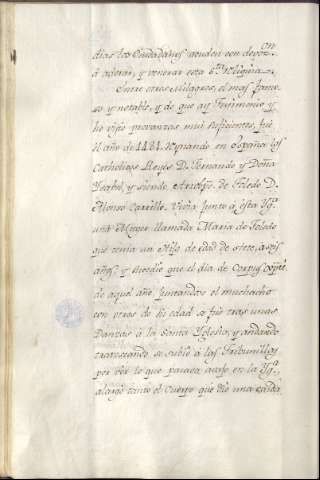 dias los Ciudadanos acuden con devoz.on
á adorar, y venerar esta S.ta Reliquia.
Entre otros Milagros, el mas famo-
so y notable, y de que ay testimonio y
ho visto provanzas mui suficientes, fué
el año de 1484. Reynando en España los
Catholicos Reyes D. Fernando y Doña
Ysabel, y siendo Arzobpo. de Toledo D.
Alonso Carrillo. Vivia junto á esta Yg.a
una Muger llamada Maria de Toledo
que tenia un Hijo de edad de siete, a seis
años, y sucedio que el dia de Corpus
de aquel año, juntandose el muchacho
con otros de su edad se fué tras unas
Danzas á la Santa Yglesia, y andando
travesando se subió á las Tribunillas
por vér lo que pasava avajo en la Yg.a
alargó tanto el Cuerpo que dio una caida